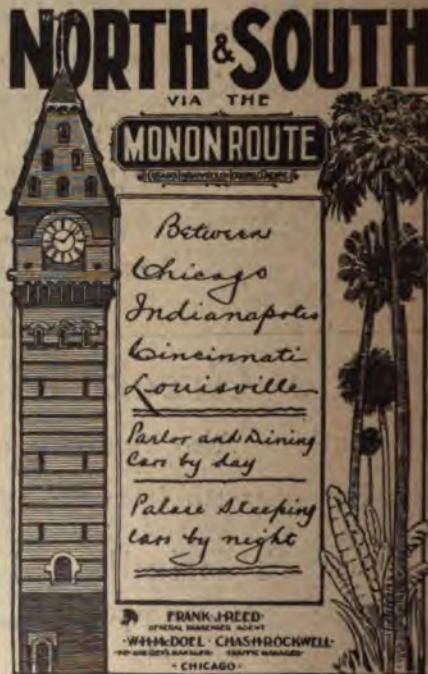 NORTH & SOUTH
VIA THE
MONON ROUTE
Between
Chicago
Indianapolis
Cincinnati
Louisville
Parlor and Dining
Cars by day
Palace Sleeping
Cars by night
FRANK·J·REED·
GENERAL PASSENGER AGENT
·W·H·McDOEL· CHAS·H·ROCKWELL·
TRAFFIC MANAGER
·CHICAGO·